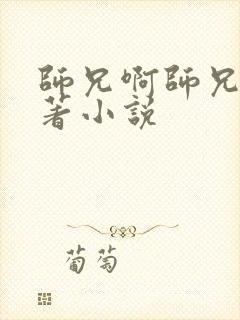 師兄啊師兄
著小説
葡萄